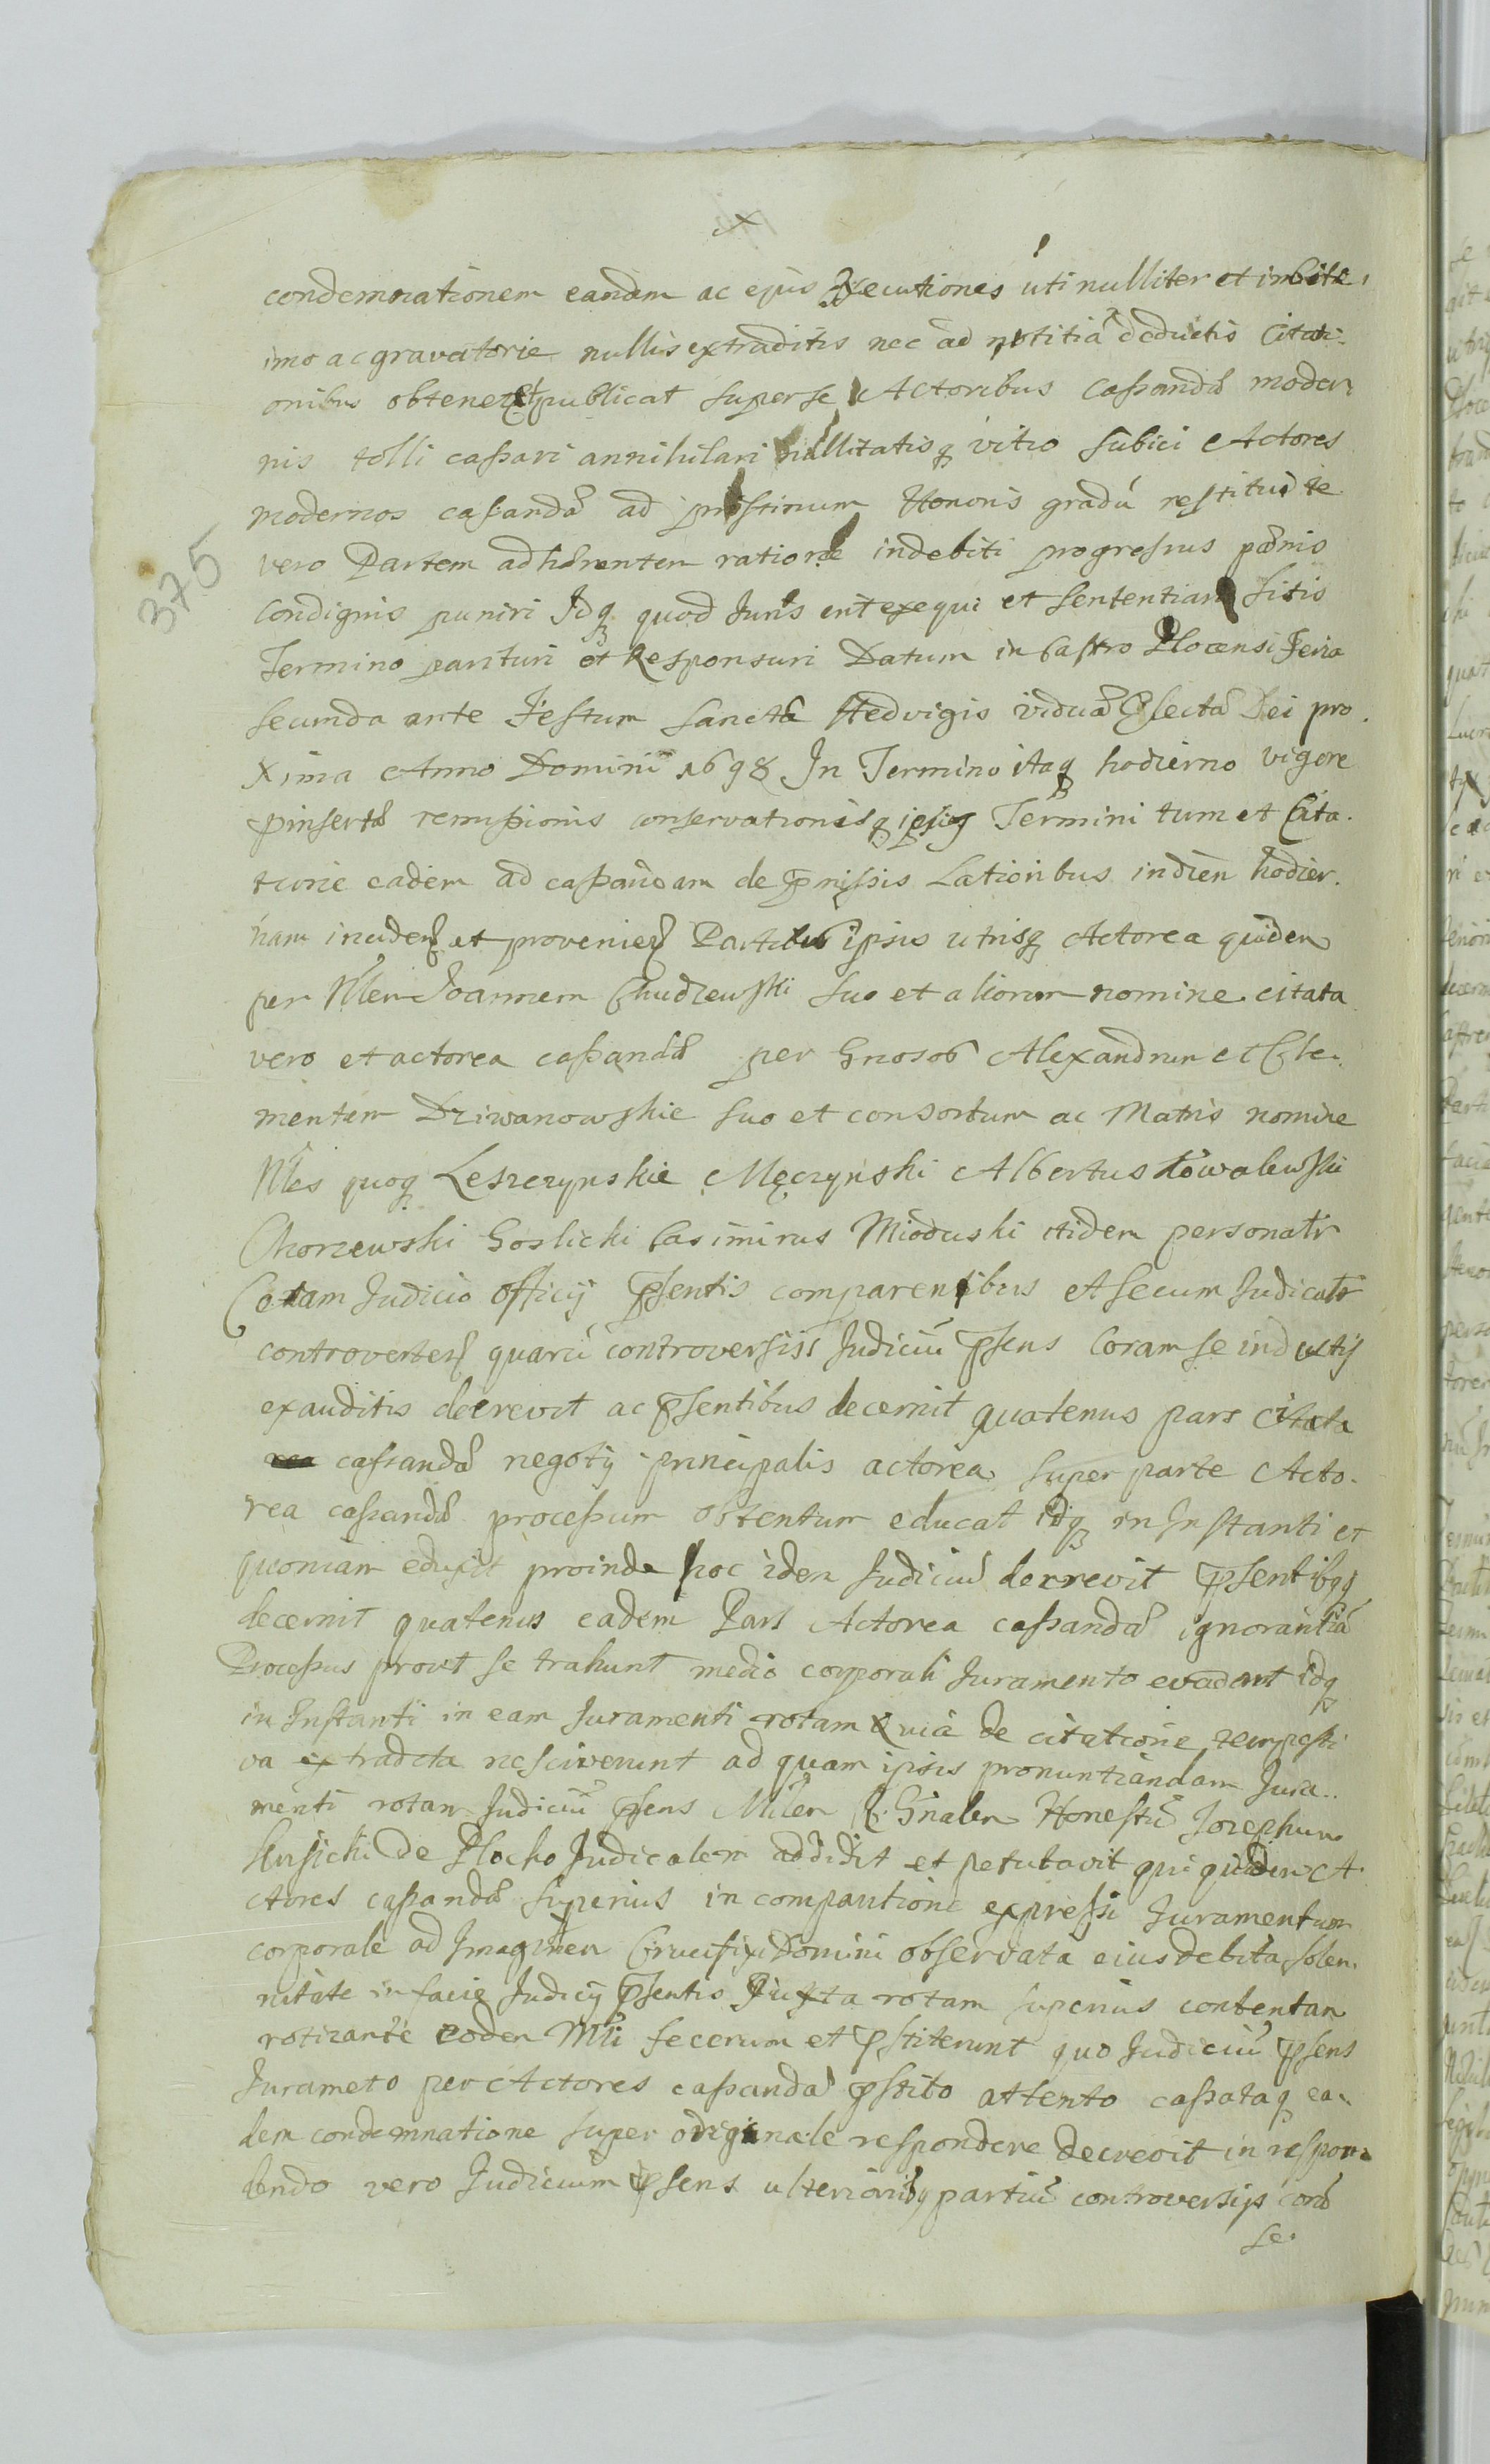 condemnationem eandem ac ejus Executiones uti nulliter et imbite
imo ac gravatorie nullis extraditis nec ad notitiã deductis Citati-
onibus obtener et publicat super se Actoribus cassandæ moder
nis tolli cassari annihilari nullitatisq vitio subici Actores
modernos cassandæ ad pristinum Honoris gradũ restitui te
vero Partem adhærentem ratione indebiti progressus pœnis
condignis puniri Idq quod Juris erit exequi et sententiam sitis
Termino parituri et Responsuri Datum in Castro Plocensi Feria
secunda ante Festum Sanctæ Hedvigis viduæ Electæ Dei pro
xima Anno Domini 1698 In Termino itaq hodierno vigore
pinsertæ remissionis conservationisq ipsiq Termini tum et Cita-
tionie eadem ad cassandam de pmissis Lationibus in diem hodier-
nam inciden et provenien Partibus ipsis utrisq Actorea quidem
per Nlem Joannem Chudzewski suo et aliorum nomine citata
vero et actorea cassandæ per Gnosos Alexandrum et Cle-
mentem Dziwanowskie suo et consortum ac Matris nomine
Nles quoq Leszczynskie Męczynski Albertus Kowalewski
Chorzewski Goslicki Casimirus Mioduski itidem personatr
Coram Judicio officij psentis comparentibus et secum Judicatr
controverten quarũ controversiis Judiciũ psens Coram se inductij
exauditis decrevit ac psentibus decernit quatenus pars citata
cassandæ negotij principalis actorea super parte Acto-
rea cassandæ processum obtentum educat idq in Instanti et
quoniam eduxit proinde hoc idem Judiciũ decrevit psentibqq
decernit quatenus eadem Pars Actorea cassandæ ignorantiã
Processus prout se trahunt medio corporali Juramento evadant idq
in Instanti in eam Juramenti rotam quia de citatione tempesti
va extradita nesciverunt ad quam ipsis pronuntiandam Jura-
menti rotam Judiciũ psens Mlem R. Gnalem Honestũ Josephum
de Plocko Judicialem addidit et petutavit qui quidem A
ctores cassandæ superius in comparitione expressi Juramentum
corporale ad Imaginem Crucifixi Domini observata eius debita solen-
nitate in facie Judicij psentis Juxta rotam superius contentam
rotizante eodem Mli fecerunt et pstiterunt quo Judiciũ psens
Jurameto per Actores cassandæ pstito attento cassataq ea-
dem condemnatione super originale respondere decrevit in respon-
dendo vero Judicium psens ulterioribq partiũ controversijs corã
se.
375